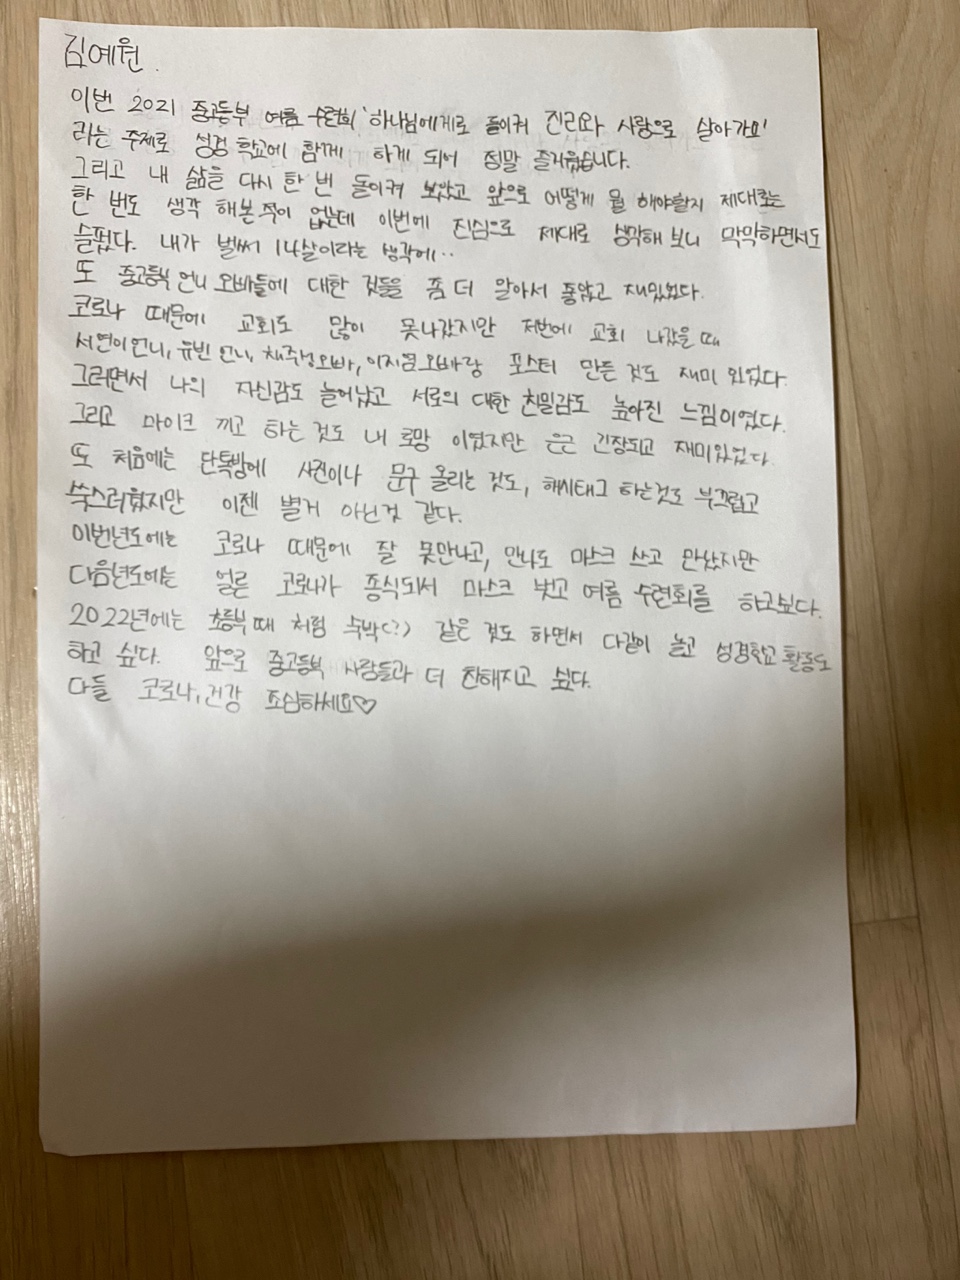 김예원.
이번 2021 중고등부 여름 수련회 '하나님에게로 돌이켜 진리와 사랑으로 살아가요'
라는 주제로 성경 학교에 함께 하게 되어 정말 즐거웠습니다.
그리고 내 삶을 다시 한 번 돌이켜 보았고 앞으로 어떻게 뭘 해야할지 제대로는
한 번도 생각 해본 적이 없는데 이번에 진심으로 제대로 생각해 보니 막막하면서도
슬펐다. 내가 벌써 14살이라는 생각에..
또 중고등부 언니 오빠들에 대한 것들을 좀 더 알아서 좋았고 재밌었다.
코로나 때문에 교회도 많이 못나갔지만 저번에 교회 나갔을 때
서연이언니, 유빈 언니, 채주성오빠, 이지 오빠랑 포스터 만든 것도 재미 있었다.
그러면서 나의 자신감도 늘어났고 서로의 대한 친밀감도 높아진 느낌이였다.
그리고 마이크 끼고 하는 것도 내 로망 이였지만 은근 긴장되고 재미있었다
또 처음에는 단톡방에 사진이나 문구 올리는 것도, 해시태그 하는것도 부끄럽고
쑥스러웠지만 이젠 별거 아닌것 같다.
이번년도에는 코로나 때문에 잘 못만나고, 만나도 마스크 쓰고 만났지만
다음년도에는 얼른 코로나가 종식되서 마스크 벗고 여름 수련회를 하고싶다.
2022년에는 초등부 때 처럼 숙박(?) 같은 것도 하면서 다같이 놀고 성경학교 활동도
하고 싶다. 앞으로 중고등부 사람들과 더 친해지고 싶다.
다들 코로나, 건강 조심하세요♡